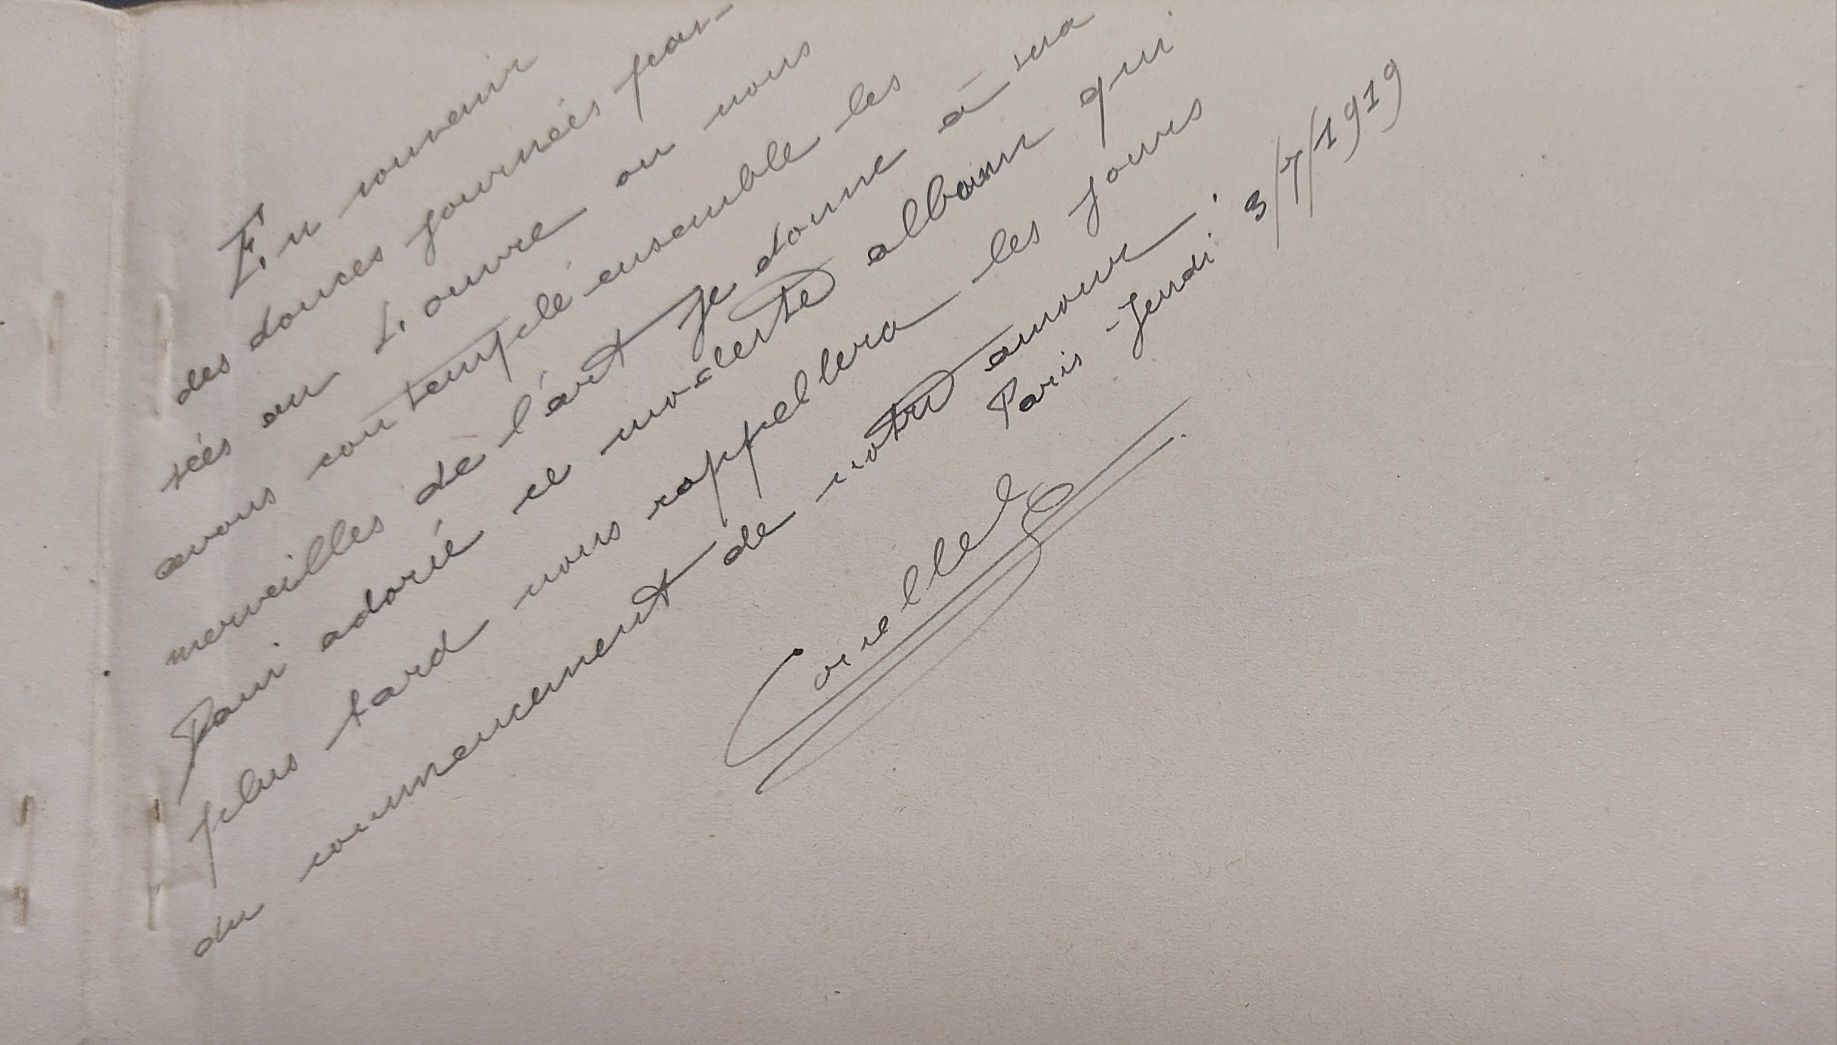 En souvenir
des douces journées pas-
sées au Louvre ou nous
avons contemplé ensemble les
merveilles de l'art je donne à ma
adorée ce modeste album qui
plus tard nous rappellera les jours
du commencement de notre amour.
Paris - Jeudi 3/7/1919